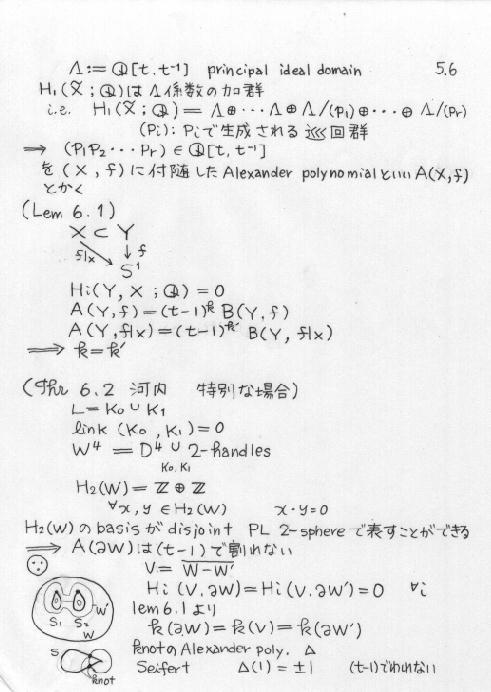 Λ := Q[t, t⁻¹] principal ideal domain 5.6
H₁(X̃; Q)は Λ係数の加群
i.e. H₁(X̃; Q) = Λ⊕···Λ⊕Λ/(P₁)⊕···⊕Λ/(Pr)
(Pi): Piで生成される巡回群
⟹ (P₁P₂···Pr) ∈ Q[t, t⁻¹]
を (X, f) に付随した Alexander polynomial といい A(X,f)
とかく
(Lem 6.1)
X ⊂ Y
f|x ↓ f
S¹
Hi(Y, X; Q) = 0
A(Y, f) = (t-1)^k B(Y, f)
A(Y, f|x) = (t-1)^k' B(Y, f|x)
⟹ k = k'
(Thr 6.2 河内 特別な場合)
L = K₀ ∪ K₁
link (K₀, K₁) = 0
W⁴ = D⁴ ∪ 2-handles
K₀.K₁
H₂(W) = Z ⊕ Z
∀x, y ∈ H₂(W) x·y = 0
H₂(W) の basis が disjoint PL 2-sphere で表すことができる
⟹ A(∂W) は (t-1) で割れない
V = W-W'
Hi(V, ∂W) = Hi(V, ∂W') = 0 ∀i
S₁ S₂ W' W
lem 6.1 より
k(∂W) = k(V) = k(∂W')
S knot
knotの Alexander poly. Δ
Seifert Δ(1) = ±1 (t-1)でわれない